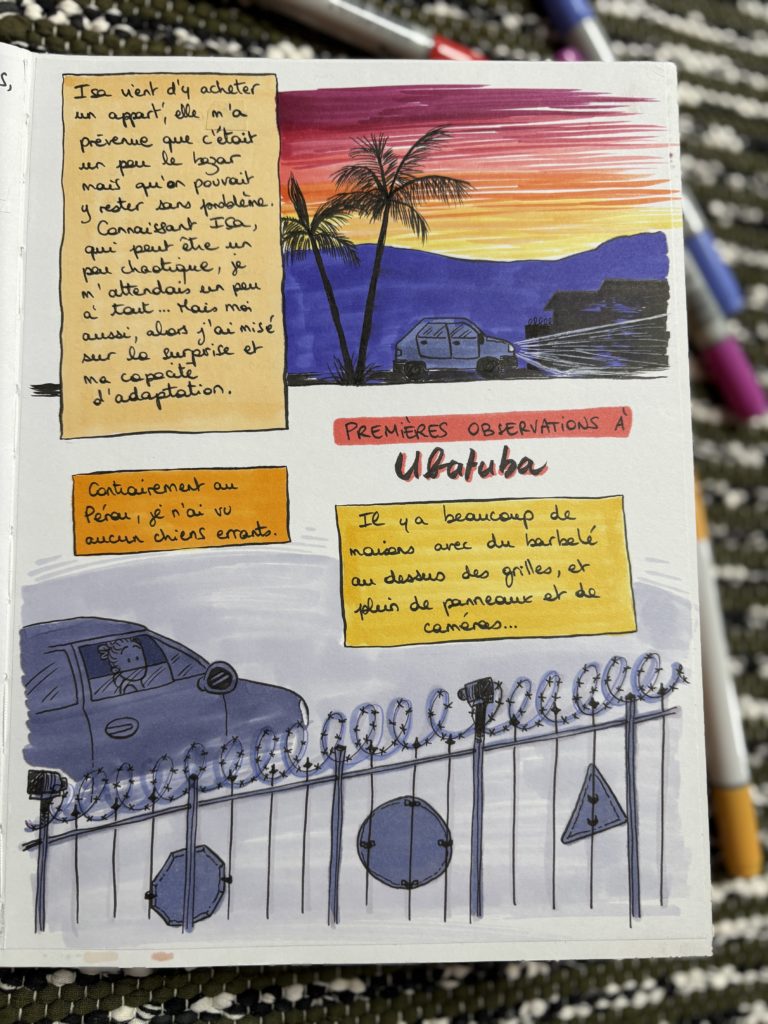 s,
Isa vient d'y acheter
un appart', elle m'a
prévenue que c'était
un peu le bazar
mais qu'on pouvait
y rester sans problème.
Connaissant Isa,
qui peut être un
peu chaotique, je
m'attendais un peu
à tout... Mais moi
aussi, alors j'ai misé
sur la surprise et
ma capacité
d'adaptation.
PREMIÈRES OBSERVATIONS À
Ubatuba
Contrairement au
Pérou, je n'ai vu
aucun chiens errants.
Il y a beaucoup de
maisons avec du barbelé
au dessus des grilles, et
plein de panneaux et de
caméras...